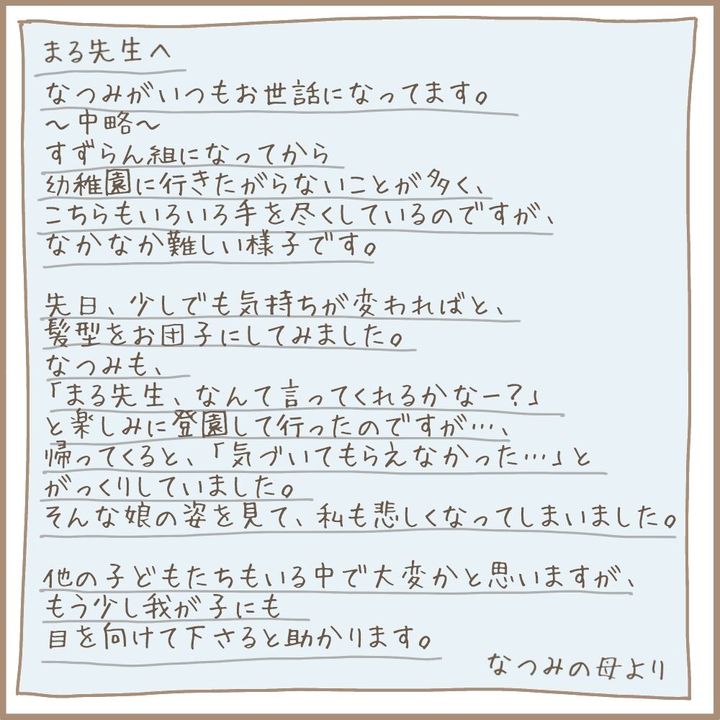 まる先生へ
なつみがいつもお世話になってます。
～中略～
すずらん組になってから
幼稚園に行きたがらないことが多く、
こちらもいろいろ手を尽くしているのですが、
なかなか難しい様子です。
先日、少しでも気持ちが変わればと、
髪型をお団子にしてみました。
なつみも、
「まる先生、なんて言ってくれるかなー?」
と楽しみに登園して行ったのですが…、
帰ってくると、「気づいてもらえなかった…」と
がっくりしていました。
そんな娘の姿を見て、私も悲しくなってしまいました。
他の子どもたちもいる中で大変かと思いますが、
もう少し我が子にも
目を向けて下さると助かります。
なつみの母より